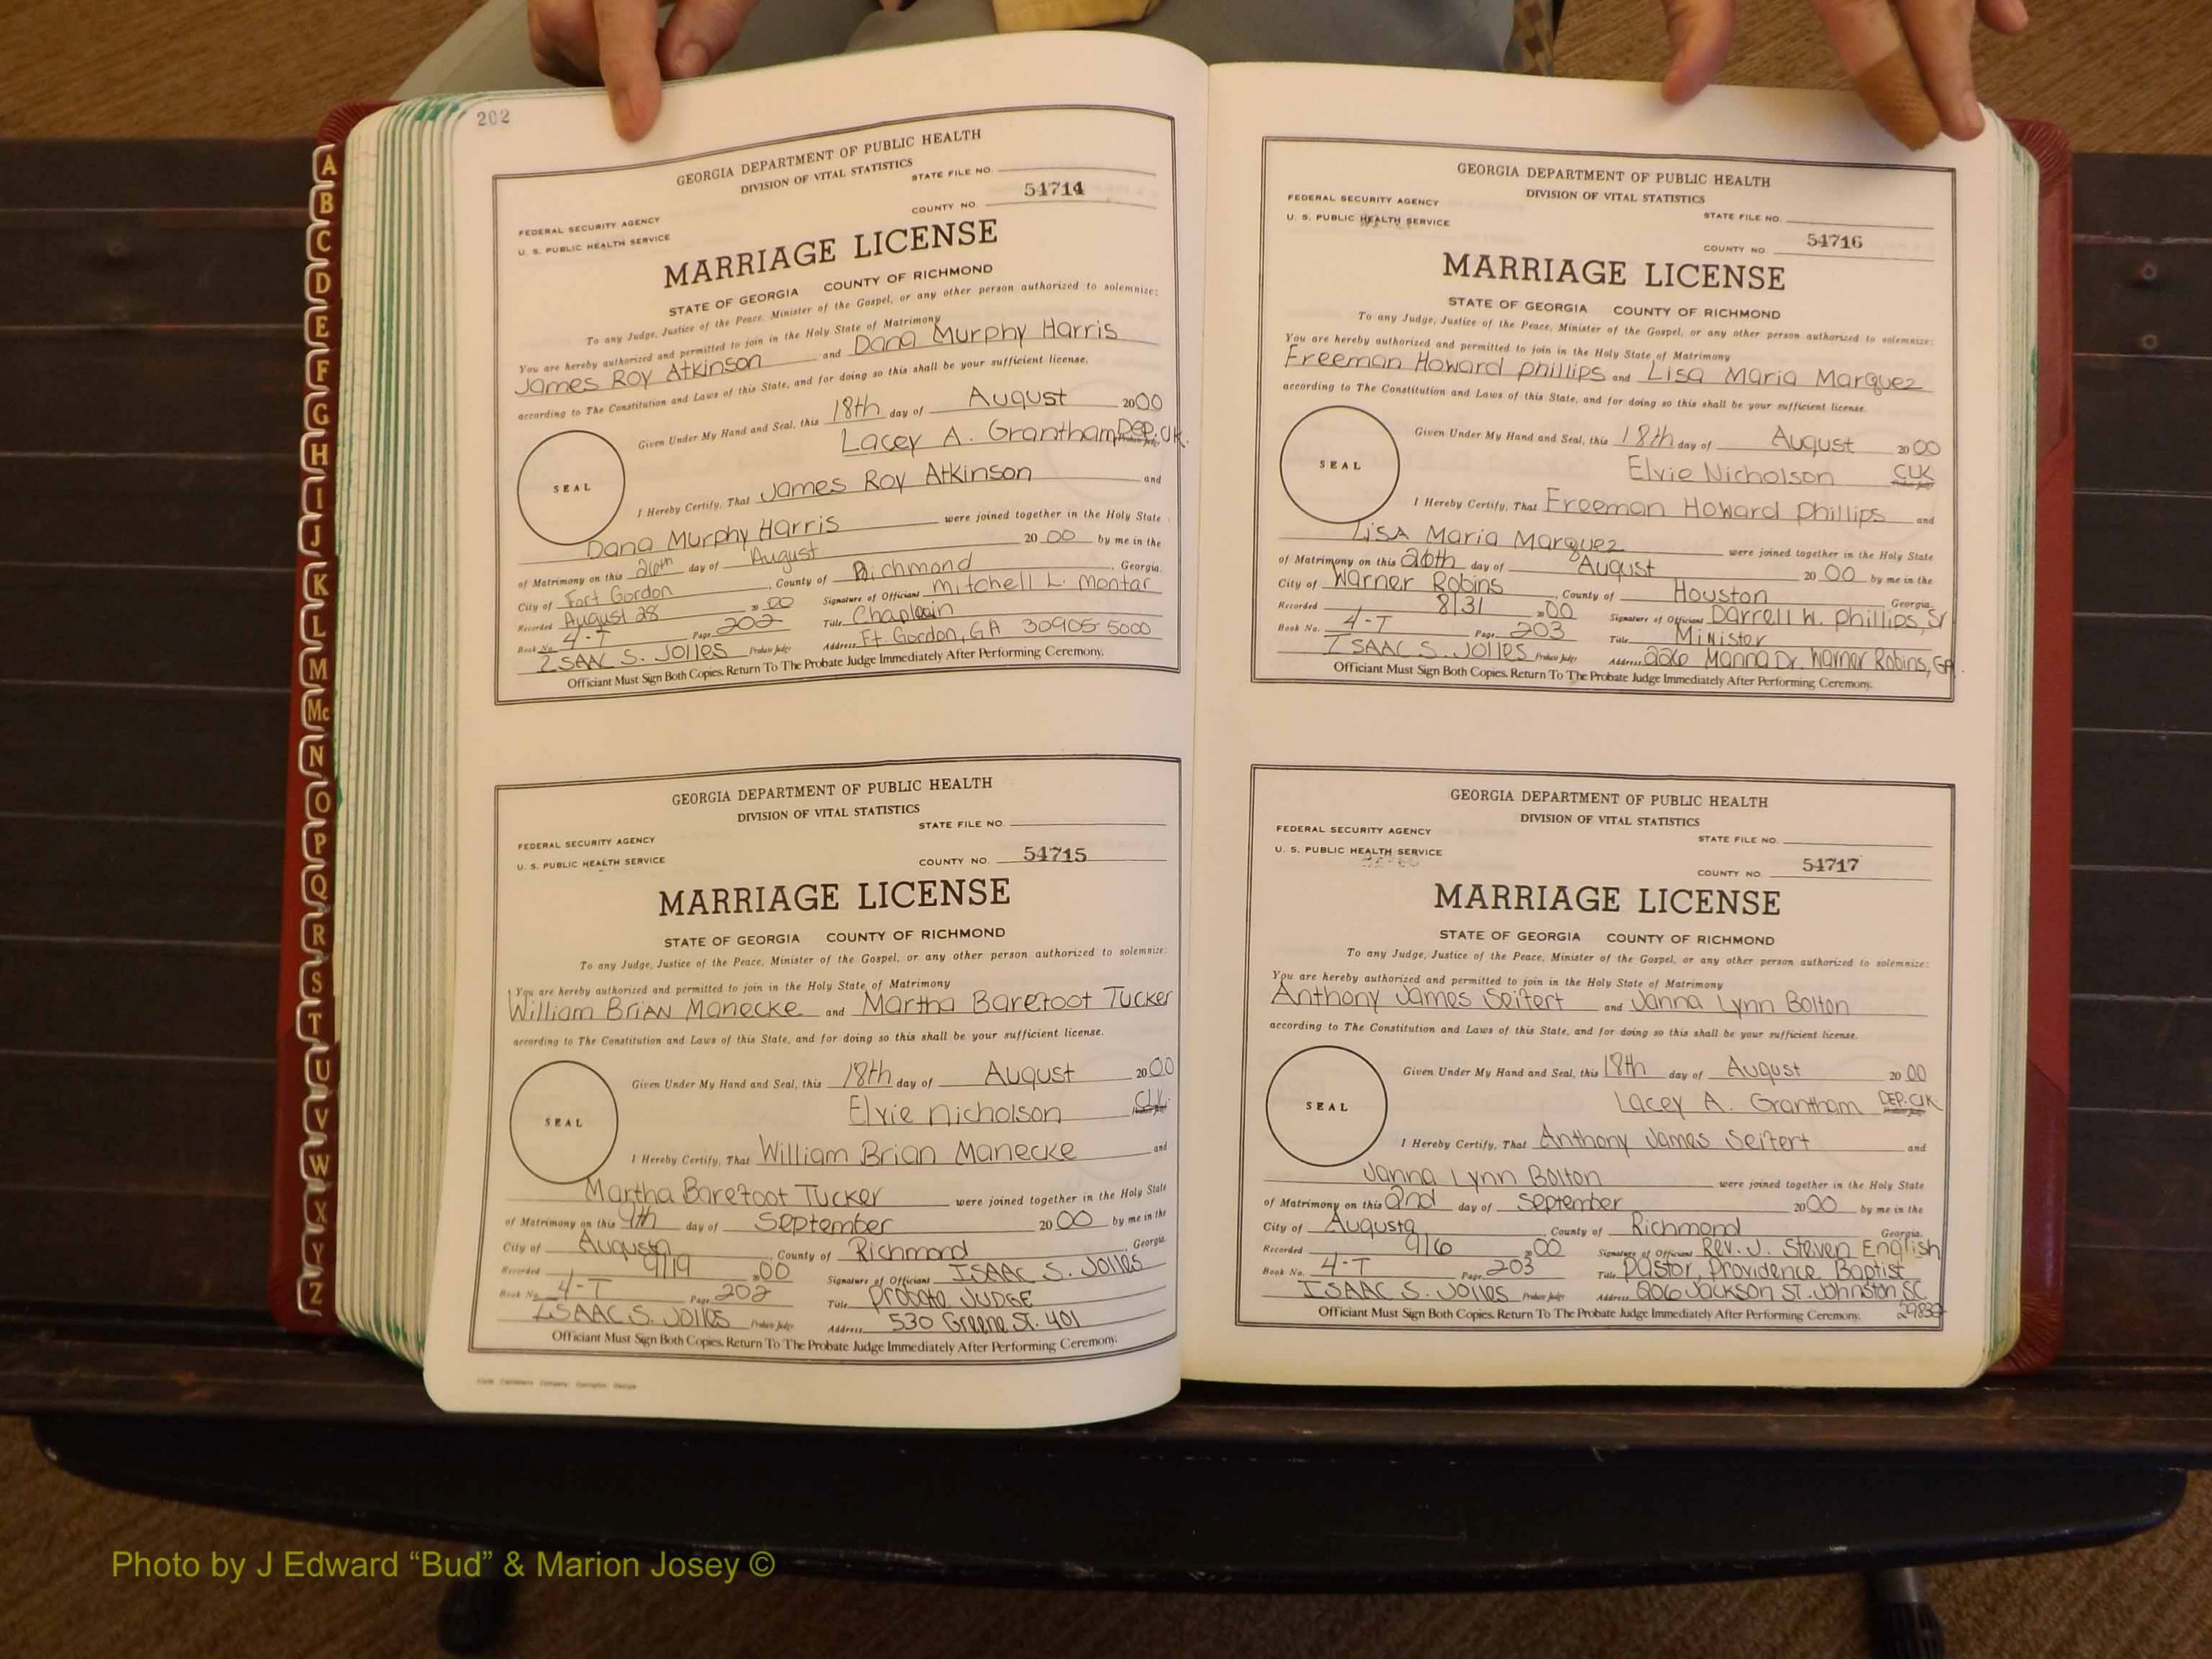 202
A
B
C
D
E
F
G
H
I
J
K
L
M
Mc
N
O
P
Q
R
S
T
U
V
W
X
Y
Z
GEORGIA DEPARTMENT OF PUBLIC HEALTH
DIVISION OF VITAL STATISTICS
STATE FILE NO.
FEDERAL SECURITY AGENCY
U. S. PUBLIC HEALTH SERVICE
COUNTY NO. 54714
MARRIAGE LICENSE
STATE OF GEORGIA COUNTY OF RICHMOND
To any Judge, Justice of the Peace, Minister of the Gospel, or any other person authorized to solemnize:
You are hereby authorized and permitted to join in the Holy State of Matrimony
James Roy Atkinson and Dana Murphy Harris
according to The Constitution and Laws of this State, and for doing so this shall be your sufficient license.
Given Under My Hand and Seal, this 18th day of August 2000
Lacey A. Grantham Dep. Clk.
SEAL
I Hereby Certify, That James Roy Atkinson and
Dana Murphy Harris were joined together in the Holy State
of Matrimony on this 26th day of August 2000 by me in the
City of Fort Gordon, County of Richmond, Georgia.
Recorded August 28 2000 Signature of Officiant Mitchell L. Montar
Book No. 4-T Page 202 Title Chaplain
ISAAC S. Jolles Probate Judge Address Ft. Gordon, GA 30905-5000
Officiant Must Sign Both Copies. Return To The Probate Judge Immediately After Performing Ceremony.
GEORGIA DEPARTMENT OF PUBLIC HEALTH
DIVISION OF VITAL STATISTICS
STATE FILE NO.
FEDERAL SECURITY AGENCY
U. S. PUBLIC HEALTH SERVICE
COUNTY NO. 54715
MARRIAGE LICENSE
STATE OF GEORGIA COUNTY OF RICHMOND
To any Judge, Justice of the Peace, Minister of the Gospel, or any other person authorized to solemnize:
You are hereby authorized and permitted to join in the Holy State of Matrimony
William Brian Manecke and Martha Barefoot Tucker
according to The Constitution and Laws of this State, and for doing so this shall be your sufficient license.
Given Under My Hand and Seal, this 18th day of August 2000
Elvie Nicholson Clk.
SEAL
I Hereby Certify, That William Brian Manecke and
Martha Barefoot Tucker were joined together in the Holy State
of Matrimony on this 9th day of September 2000 by me in the
City of Augusta, County of Richmond, Georgia.
Recorded 9/19 2000 Signature of Officiant ISAAC S. Jolles
Book No. 4-T Page 202 Title Probate JUDGE
ISAAC S. Jolles Probate Judge Address 530 Greene St. 401
Officiant Must Sign Both Copies. Return To The Probate Judge Immediately After Performing Ceremony.
GEORGIA DEPARTMENT OF PUBLIC HEALTH
DIVISION OF VITAL STATISTICS
FEDERAL SECURITY AGENCY
STATE FILE NO.
U. S. PUBLIC HEALTH SERVICE
COUNTY NO. 54716
MARRIAGE LICENSE
STATE OF GEORGIA COUNTY OF RICHMOND
To any Judge, Justice of the Peace, Minister of the Gospel, or any other person authorized to solemnize:
You are hereby authorized and permitted to join in the Holy State of Matrimony
Freeman Howard Phillips and Lisa Maria Marquez
according to The Constitution and Laws of this State, and for doing so this shall be your sufficient license.
Given Under My Hand and Seal, this 18th day of August 2000
Elvie Nicholson CLK
SEAL
I Hereby Certify, That Freeman Howard Phillips and
Lisa Maria Marquez were joined together in the Holy State
of Matrimony on this 26th day of August 2000 by me in the
City of Warner Robins, County of Houston Georgia.
Recorded 8/31 2000 Signature of Officiant Darrell W. Phillips, Sr
Book No. 4-T Page 203 Title Minister
ISAAC S. Jolles Probate Judge Address 226 Manna Dr. Warner Robins, GA.
Officiant Must Sign Both Copies. Return To The Probate Judge Immediately After Performing Ceremony.
GEORGIA DEPARTMENT OF PUBLIC HEALTH
DIVISION OF VITAL STATISTICS
FEDERAL SECURITY AGENCY
STATE FILE NO.
U. S. PUBLIC HEALTH SERVICE
COUNTY NO. 54717
MARRIAGE LICENSE
STATE OF GEORGIA COUNTY OF RICHMOND
To any Judge, Justice of the Peace, Minister of the Gospel, or any other person authorized to solemnize:
You are hereby authorized and permitted to join in the Holy State of Matrimony
Anthony James Seifert and Janna Lynn Bolton
according to The Constitution and Laws of this State, and for doing so this shall be your sufficient license.
Given Under My Hand and Seal, this 18th day of August 2000
Lacey A. Grantham DEP. Clk
SEAL
I Hereby Certify, That Anthony James Seifert and
Janna Lynn Bolton were joined together in the Holy State
of Matrimony on this 2nd day of September 2000 by me in the
City of Augusta, County of Richmond Georgia.
Recorded 9/6 2000 Signature of Officiant Rev. J. Steven English
Book No. 4-T Page 203 Title Pastor, Providence Baptist
ISAAC S. Jolles Probate Judge Address 206 Jackson St. Johnston SC
Officiant Must Sign Both Copies. Return To The Probate Judge Immediately After Performing Ceremony. 29832
Photo by J Edward “Bud” & Marion Josey ©